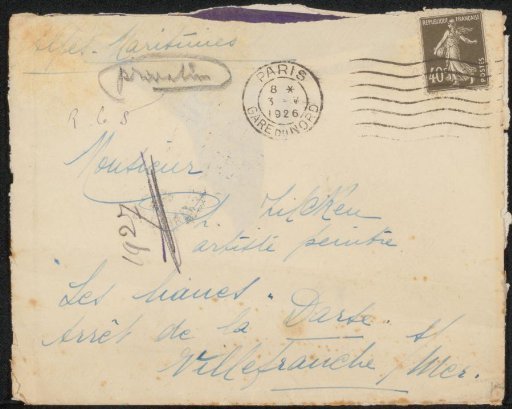 Alpes-Maritimes
RÉPUBLIQUE FRANÇAISE
40c
POSTES
PARIS
8 *
3 - V
1926
GARE DU NORD
R G S
Monsieur
1927
Zilcken
artiste peintre
"Les lianes"
Arrêt de la Darse
Villefranche s/ Mer.